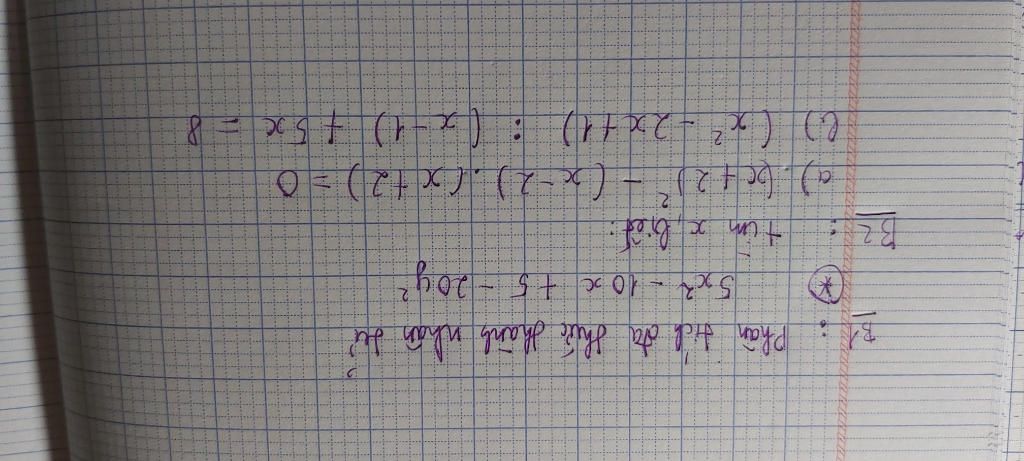 B1 : Phân tích đa thức thành nhân tử
* 5x² - 10x + 5 - 20y²
B2 : tìm x, biết:
a) (x+2)² - (x-2).(x+2) = 0
b) (x² - 2x+1) : (x-1) + 5x = 8